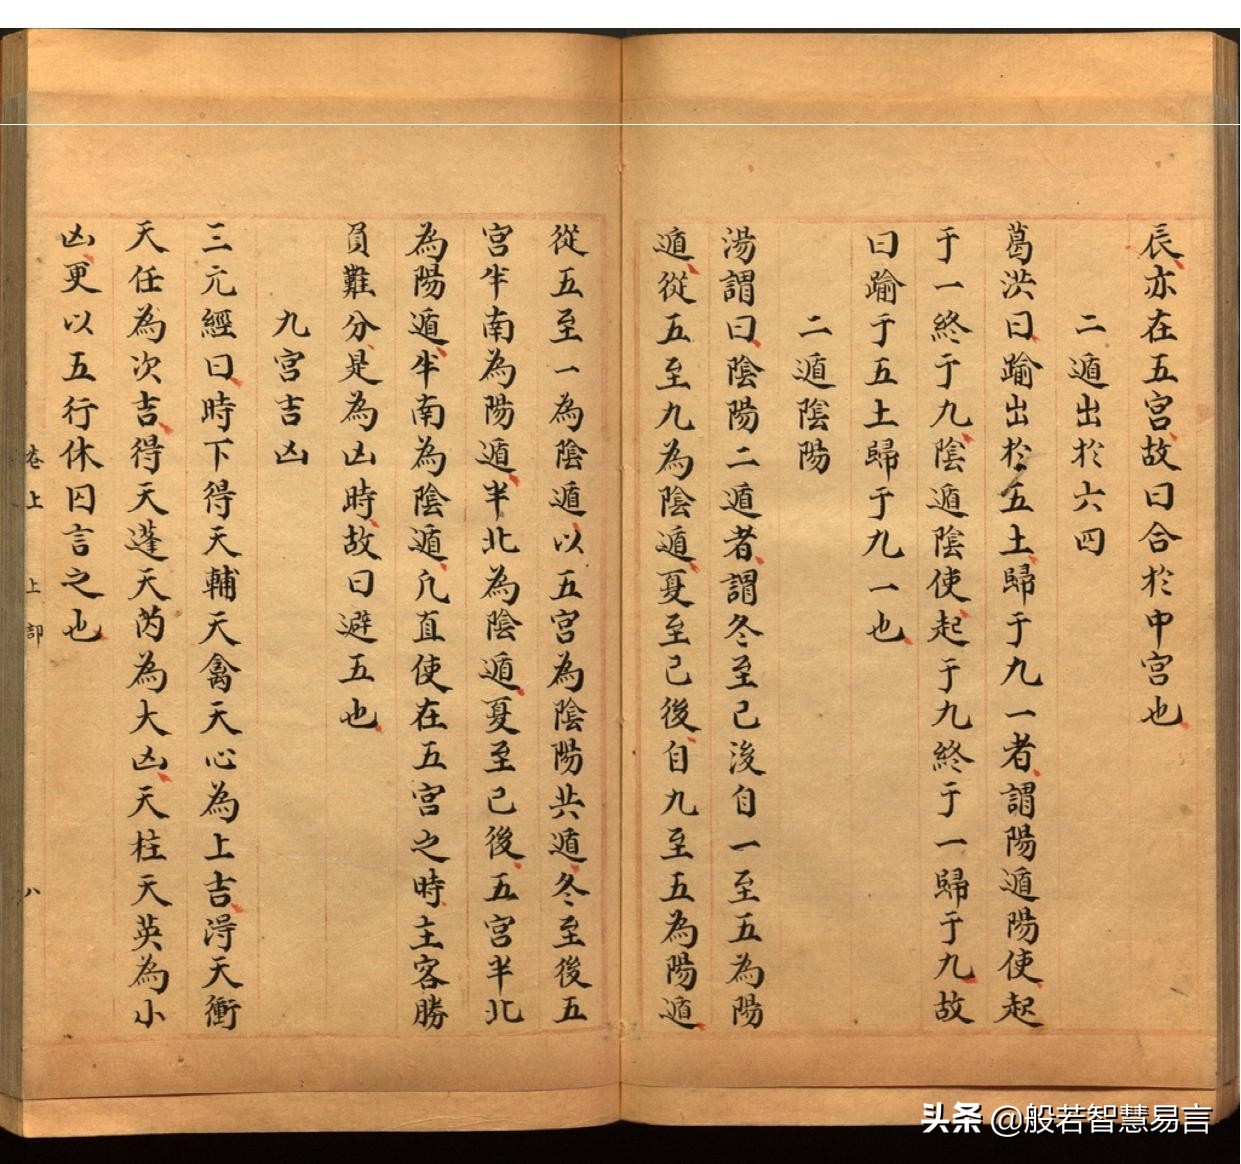 辰亦在五宮故曰合於中宮也
二遁出於六四
葛洪曰踰出於五土歸于九一者謂陽遁陽使起
于一終于九陰遁陰使起于九終于一歸于九故
曰踰于五土歸于九一也
二遁陰陽
湯謂曰陰陽二遁者謂冬至已後自一至五為陽
遁從五至九為陰遁夏至已後自九至五為陽遁
從五至一為陰遁以五宮為陰陽共遁冬至後五
宮半南為陽遁半北為陰遁夏至已後五宮半北
為陽遁半南為陰遁凡直使在五宮之時主客勝
負難分是為凶時故曰避五也
九宮吉凶
三元經曰時下得天輔天禽天心為上吉得天衝
天任為次吉得天蓬天芮為大凶天柱天英為小
凶更以五行休囚言之也
卷上 上部 八
头条 @般若智慧易言